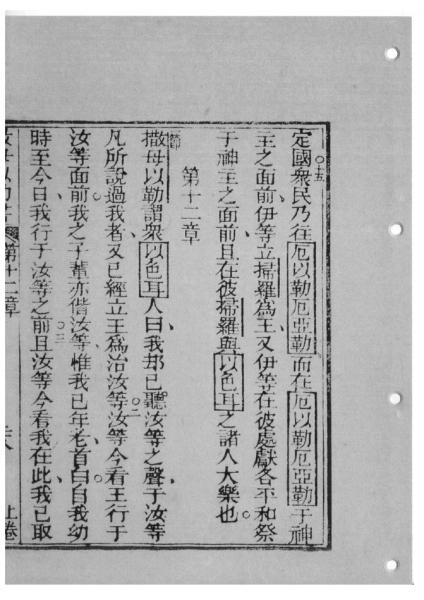 定國衆民乃往厄以勒厄亞勒而在厄以勒厄亞勒于神
〇十五
主之面前伊等立掃羅爲王又伊等在彼處獻各平和祭
于神主之面前且在彼掃羅與以色耳之諸人大樂也
第十二章
撒母以勒謂衆以色耳人曰我却已聽汝等之聲于汝等
凡所說過我者又已經立王爲治汝等汝等今看王行于
〇二
汝等面前我之子輩亦偕汝等惟我已年老首白自我幼
時至今日我行于汝等之前且汝等今看我在此我已取
〇三
第十二章
上卷